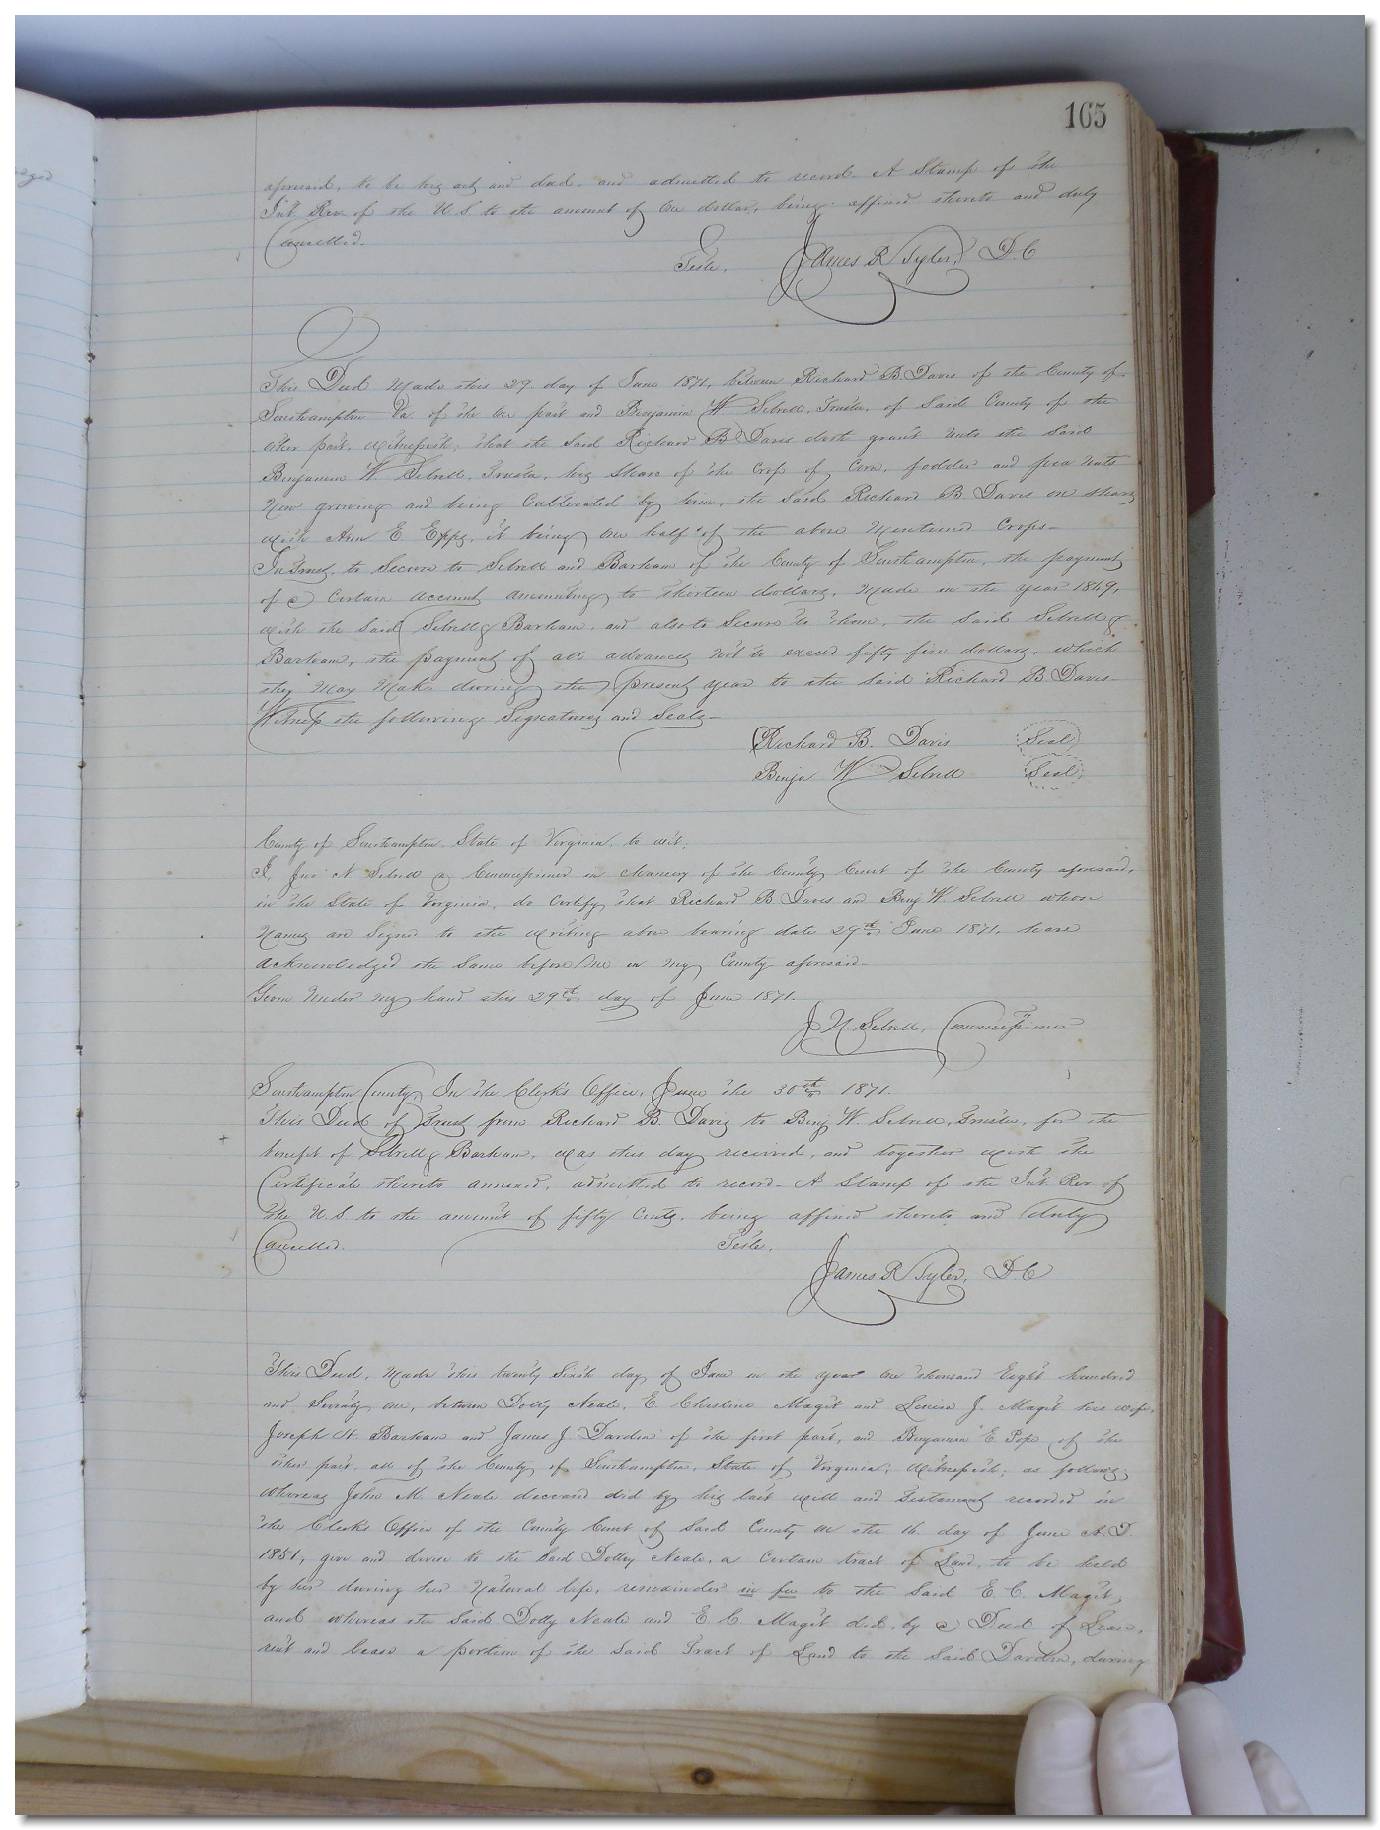 165
aforesaid, to be his act and deed, and admitted to record. A Stamp of the
Int. Rev. of the U.S. to the amount of One dollar, being affixed thereto and duly
Cancelled.
Teste, James R Tyler, D.C
This Deed Made this 29 day of June 1871, between Richard B Davis of the County of
Southampton Va. of the one part and Benjamin W Sebrell, Trustee, of Said County of the
other part, Witnesseth, that the Said Richard B Davis doth grant unto the Said
Benjamin W. Sebrell, Trustee, his Share of the Crop of Corn, fodder and pea nuts
Now growing and being Cultivated by him, the Said Richard B Davis on Shares
with Ann E Epps, it being one half of the above Mentioned Crops—
In Trust, to Secure to Sebrell and Barham of the County of Southampton, the payment
of a Certain account amounting to thirteen dollars, Made in the year 1869,
with the Said Sebrell & Barham, and also to Secure to them, the Said Sebrell &
Barham, the payment of all advances not to exceed fifty five dollars, which
they May Make during the present year to the Said Richard B Davis
Witness the following Signatures and Seals—
Richard B. Davis Seal
Benja W Sebrell Seal
County of Southampton State of Virginia, to wit:
I, Jno N Sebrell a Commissioner in chancery of the County Court of the County aforesaid,
in the State of Virginia, do Certify that Richard B Davis and Benj W. Sebrell whose
Names are Signed to the Writing above bearing date 29th June 1871, have
acknowledged the Same before Me in my County aforesaid—
Given Under My hand this 29th day of June 1871.
J N Sebrell, Commissioner
Southampton County, In the Clerk's Office, June the 30th 1871.
This Deed of Trust from Richard B. Davis to Benj W. Sebrell, Trustee, for the
benefit of Sebrell & Barham, was this day received, and together with the
Certificate thereto annexed, admitted to record— A Stamp of the Int Rev. of
the U.S to the amount of fifty Cents, being affixed thereto and duly
Cancelled. Teste,
James R Tyler, D.C
This Deed, Made this twenty Sixth day of June in the year one thousand Eight hundred
and Seventy one, between Dolly Neale, E Christine Magit and Louisa J. Magit his wife,
Joseph H. Barham and James J. Darden of the first part, and Benjamin E Pope of the
other part, all of the County of Southampton, State of Virginia, Witnesseth; as follows;
Whereas John M. Neale deceased did by his last will and testament recorded in
the Clerk's Office of the County Court of Said County on the 16 day of June A.D.
1851, give and devise to the Said Dolly Neale, a Certain tract of Land, to be held
by her during her Natural life, remainder in fee to the Said E. C. Magit,
and whereas the Said Dolly Neale and E. C. Magit did, by a Deed of Lease,
rent and lease a portion of the Said Tract of Land to the Said Darden, during